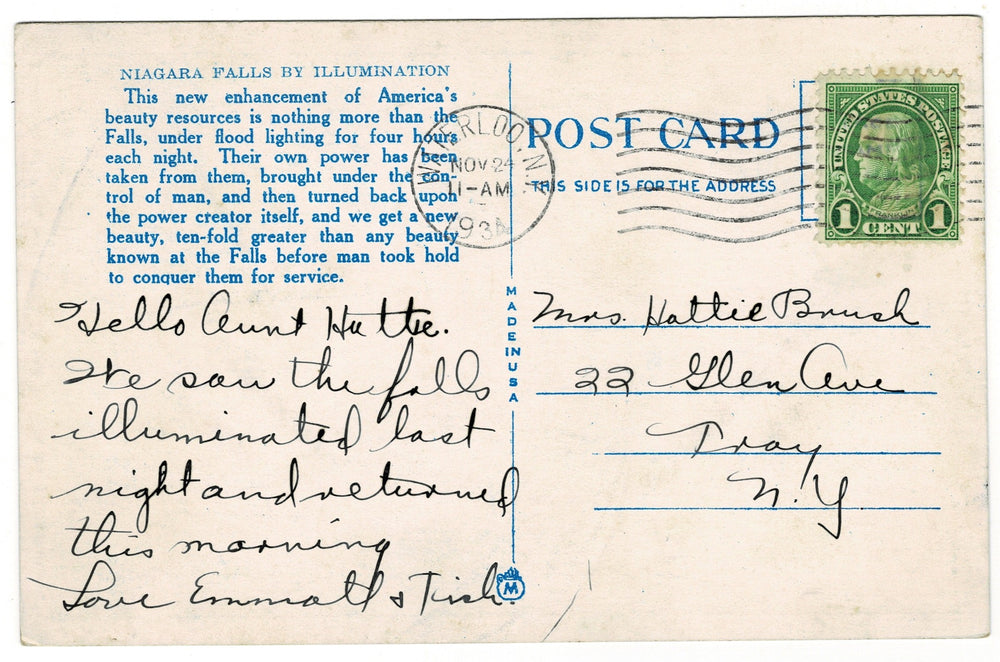 NIAGARA FALLS BY ILLUMINATION
This new enhancement of America's
beauty resources is nothing more than the
Falls, under flood lighting for four hours
each night. Their own power has been
taken from them, brought under the con-
trol of man, and then turned back upon
the power creator itself, and we get a new
beauty, ten-fold greater than any beauty
known at the Falls before man took hold
to conquer them for service.
Hello Aunt Hattie.
We saw the falls
illuminated last
night and returned
this morning
Love Emmott & Tish.
MADE IN USA
M
WATERLOO N.Y.
NOV 24
11-AM
193
POST CARD
THIS SIDE IS FOR THE ADDRESS
UNITED STATES POSTAGE
FRANKLIN
1 CENT 1
Mrs. Hattie Brush
22 Glen Ave
Troy
N.Y